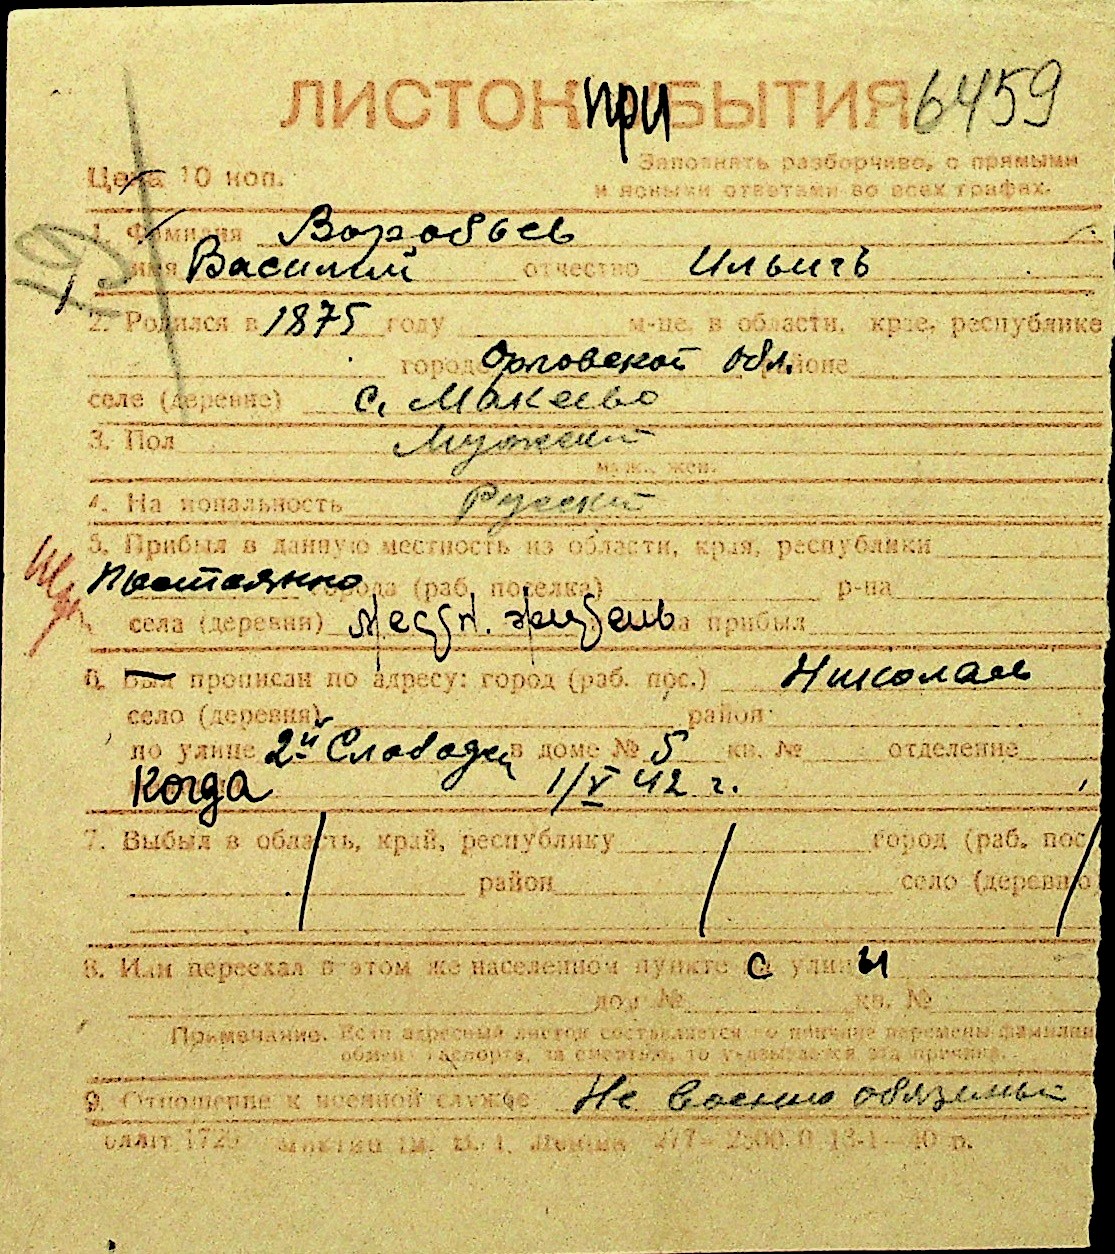 ЛИСТОК ПРИБЫТИЯ 6459
Цена 10 коп.
Заполнять разборчиво, с прямыми
и ясными ответами во всех графах.
19
1. Фамилия Воробьев
имя Василий отчество Ильичъ
2. Родился в 1875 году м-це, в области, крае, республике
городе Орловской обл. районе
селе (деревне) с. Макеево
3. Пол Мужской
муж., жен.
4. Национальность Русский
5. Прибыл в данную местность из области, края, республики
Постоянно города (раб. поселка) р-на
села (деревня) местн. житель на прибыл
6. Был прописан по адресу: город (раб. пос.) Николаев
село (деревня) район
по улице 2й Слободск в доме № 5 кв. № отделение
Когда 1/V 42 г.
7. Выбыл в область, край, республику город (раб. пос
район село (деревню
8. Или переехал в этом же населенном пункте с улицы
дом № кв. №
Примечание. Если адресный листок составляется по причине перемены фамилии
обмена паспорта, за смертью, то указывается эта причина.
9. Отношение к военной службе Не военно обязанный
1725 им. В. І. Леніна 277—2500.0 13-1—40 р.